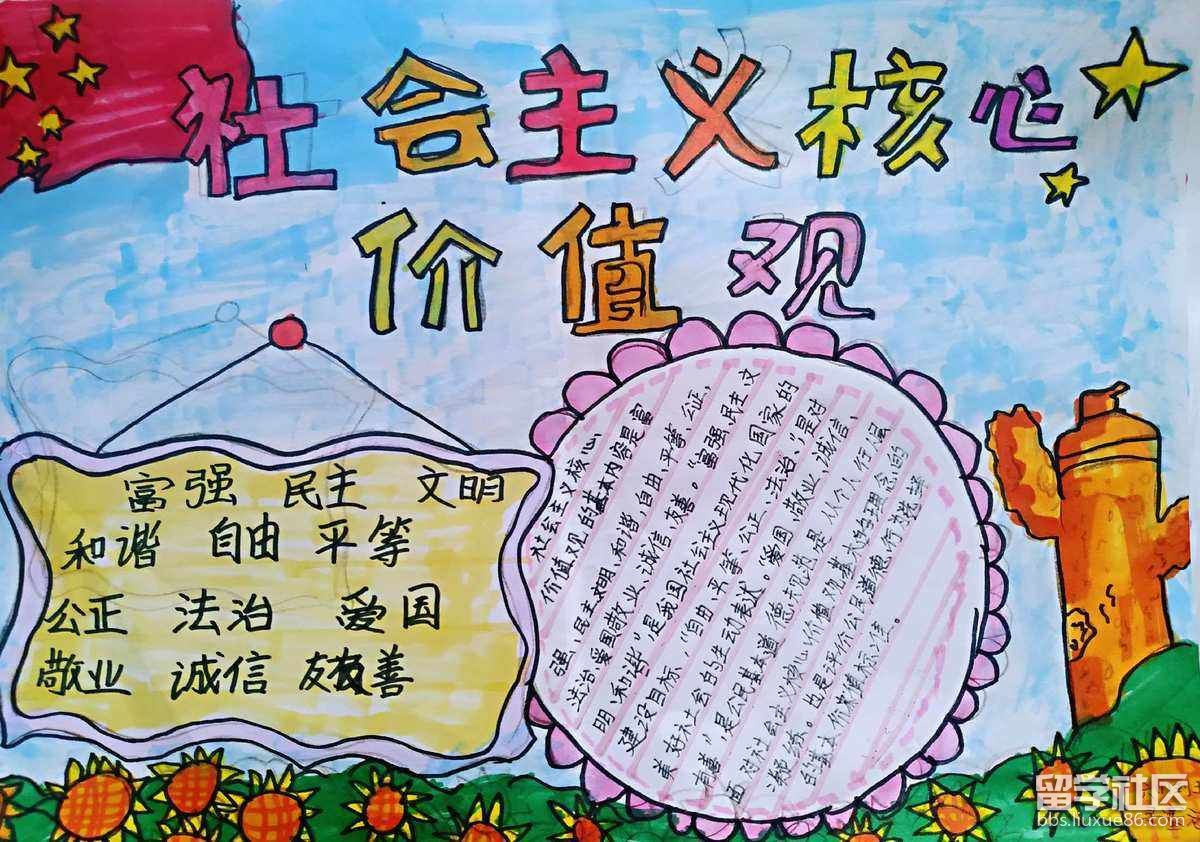 社会主义核心
价值观
富强 民主 文明
和谐 自由 平等
公正 法治 爱国
敬业 诚信 友善
社会主义核心
价值观的基本内容是富
强、民主、文明、和谐,自由、平等、公正、
法治、爱国、敬业、诚信、友善。“富强、民主、文
明、和谐”是我国社会主义现代化国家的
建设目标。“自由、平等、公正、法治、”是对
美好社会的生动表述。“爱国、敬业、诚信、
友善”,是公民基本道德规范是从个人行
面对社会主义核心价值观基本的理念的
凝练。也是评价公民道德行为选择
的基本价值标准。
留学社区
bbs.liuxue86.com